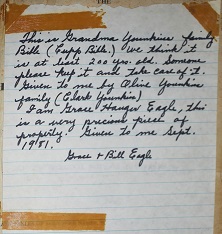 THE
This is Grandma Younkins family
Bible (Cupp Bible.) We think it
is at least 200 yrs. old. Someone
please keep it and take care of it.
Given to me by Olive Younkin
family (Clark Younkin)
I am Grace Hanger Eagle, this
is a very precious piece of
property. Given to me Sept.
1951.
Grace & Bill Eagle